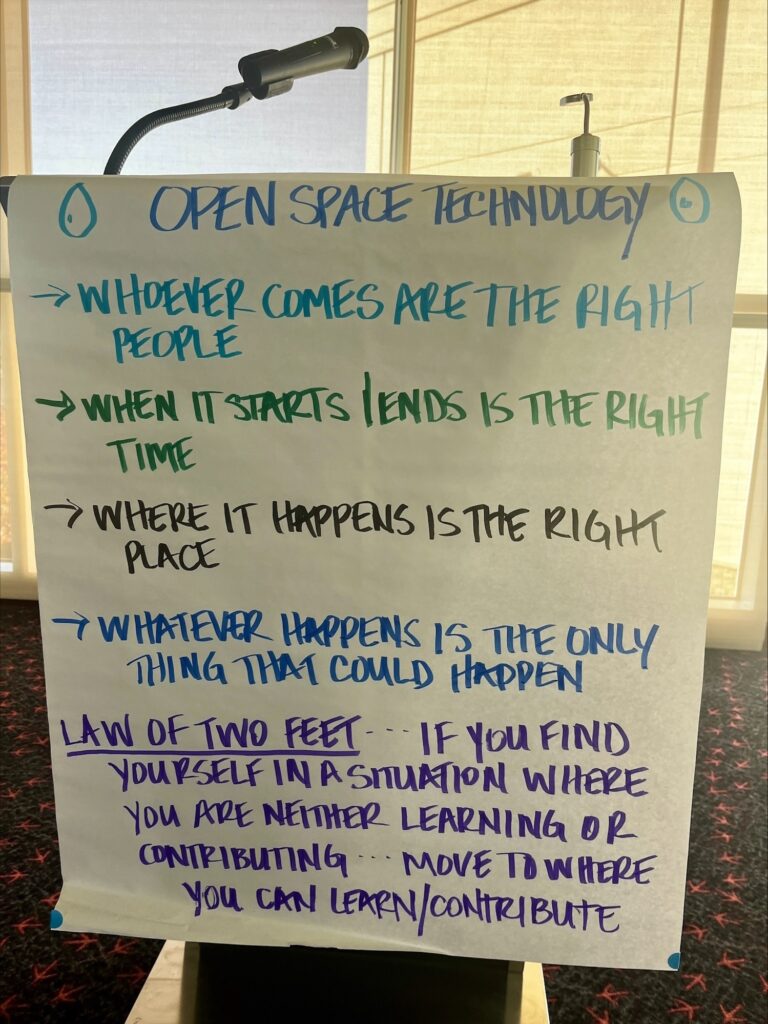 OPEN SPACE TECHNOLOGY
→ WHOEVER COMES ARE THE RIGHT
PEOPLE
→ WHEN IT STARTS / ENDS IS THE RIGHT
TIME
→ WHERE IT HAPPENS IS THE RIGHT
PLACE
→ WHATEVER HAPPENS IS THE ONLY
THING THAT COULD HAPPEN
LAW OF TWO FEET --- IF YOU FIND
YOURSELF IN A SITUATION WHERE
YOU ARE NEITHER LEARNING OR
CONTRIBUTING --- MOVE TO WHERE
YOU CAN LEARN/CONTRIBUTE